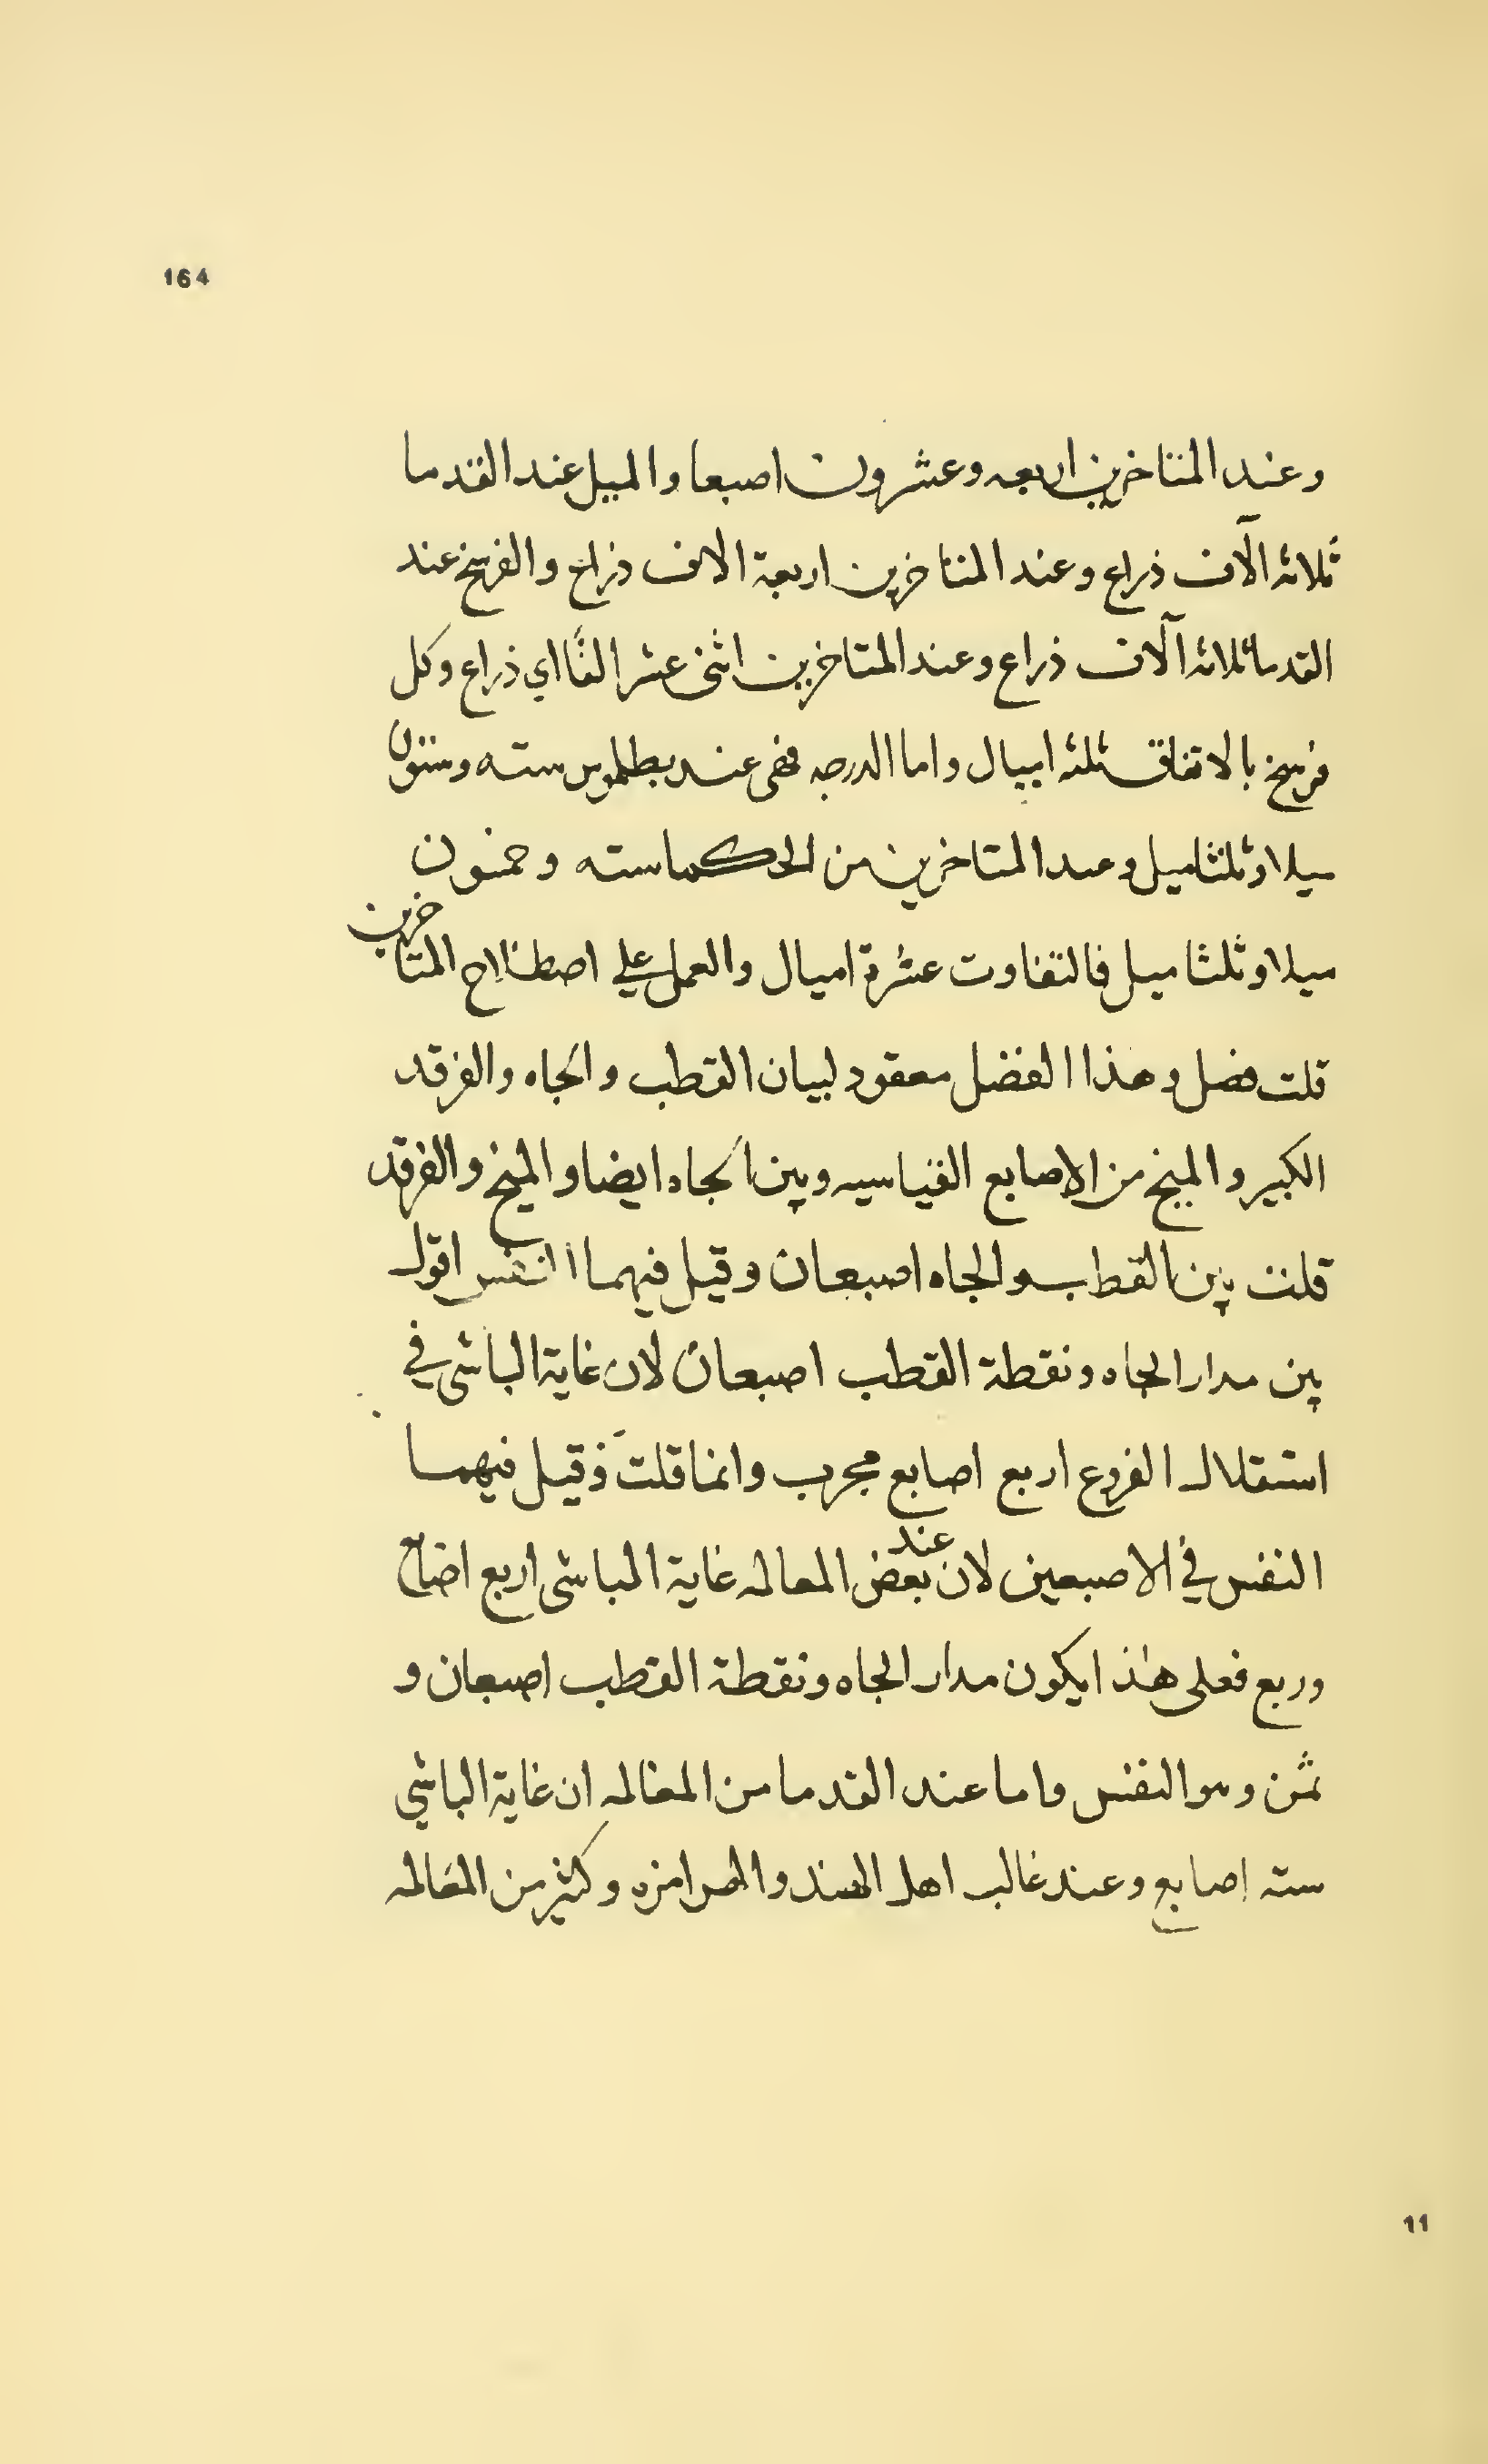 164
وعند المتاخرين اربعه وعشرون اصبعا والميل عند القدما
ثلاثه آلاف ذراع وعند المتاخرين اربعة الاف ذراع والفرسخ عند
القدما ثلاثه آلاف ذراع وعند المتاخرين اثنى عشر الفًا اي ذراع وكل
فرسخ بالاتفاق ثلثه اميال واما الدرجه فهى عند بطلموس سته وستون
ميلا وثلثا ميل وعند المتاخرين من الحكما سته وخمسون
ميلا وثلثا ميل فالتفاوت عشرة اميال والعمل على اصطلاح المتاخرين
قلت فصل وهذا الفصل معقود لبيان القطب والجاه والفرقد
الكبير والميخ من الاصابع القياسيه وبين الجاه ايضا والميخ والفرقد
قلت بين القطب والجاه اصبعان وقيل فيهما النفس اقول
بين مدار الجاه ونقطة القطب اصبعان لان غاية الباشى في
استقلال الفروع اربع اصابع مجرب وانما قلت وقيل فيهما
النفس في الاصبعين لان عند بعض المعالمه غاية الباشى اربع اصابع
وربع فعلى هذا يكون مدار الجاه ونقطة القطب اصبعان و
ثمن وهو النفس واما عند القدما من المعالمه ان غاية الباشي
سته اصابع وعند غالب اهل الهند والهرامزه وكثير من المعالمه
11